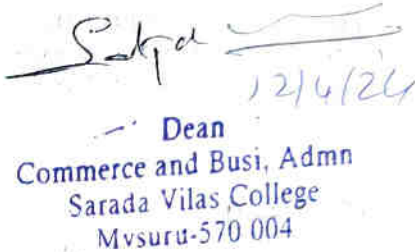 12/4/24
Dean
Commerce and Busi, Admn
Sarada Vilas College
Mysuru-570 004